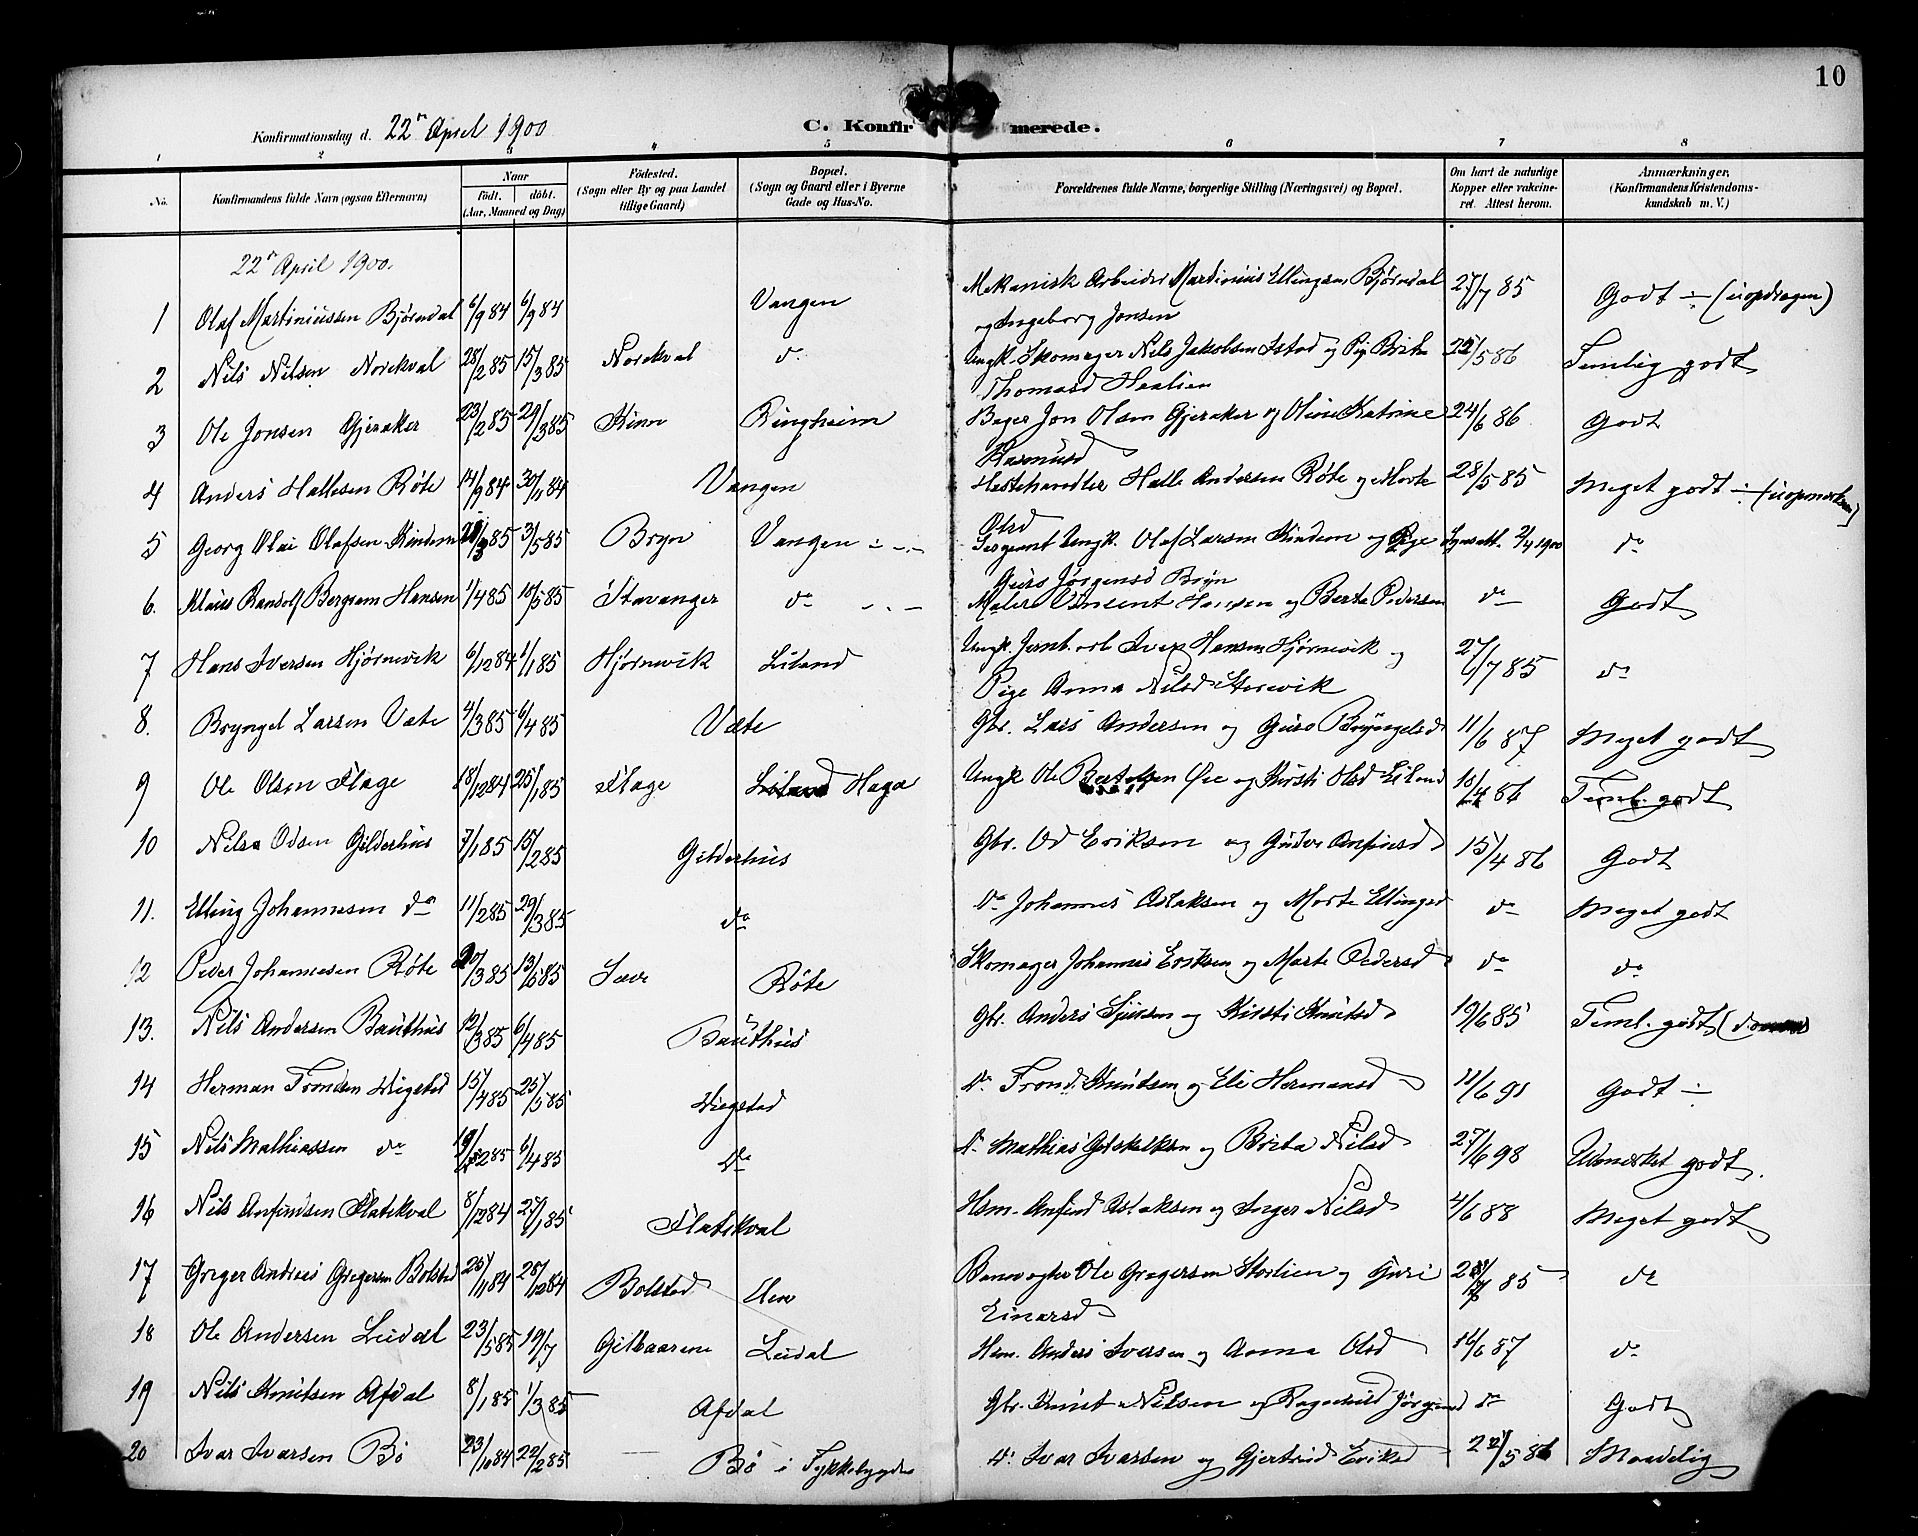 10
Konfirmationsdag d. 22n April 1900
C. Konfirmerede.
1 2 3 4 5 6 7 8
No.
Konfirmandens fulde Navn (ogsaa Efternavn)
Naar
födt. döbt.
(Aar, Maaned og Dag)
Födested.
(Sogn eller By og paa Landet tillige Gaard)
Bopæl.
(Sogn og Gaard eller i Byerne Gade og Hus-No.
Forældrenes fulde Navne, borgerlige Stilling (Næringsvei) og Bopæl.
Om havt de naturlige Kopper eller vakcineret. Attest herom.
Anmærkninger,
(Konfirmandens Kristendomskundskab m. V.)
22n April 1900.
1 Olaf Martiniussen Bjørndal 6/9 84 6/9 84 Vangen Mekanisk Arbeider Martinius Ellingsen Bjørndal 27/7 85 Godt ÷ (uopdragen)
og Ingeborg Jonsen
2 Nils Nilsen Norekval 28/2 85 15/3 85 Norekval do Ungk. Skomager Nils Jakobsen Istad og Pig Brita 5 86 Temlig godt
Thomasd
3 Ole Jonsen Gjeraker 23/2 85 29/3 85 Kinn Ringheim Bager Jon Olsen Gjeraker og Oline Katrine 24/6 86 Godt
Rasmusd
4 Anders Hallesen Røte 14/9 84 30/11 84 Vangen Hestehandler Halle Andersen Røte og Marte 28/5 85 Meget godt ÷ (uopmerksom)
Olsd
5 Georg Olai Olafsen Kindem 3 85 3/5 85 Bryn Vangen Sergeant Ungk. Olaf Larsen Kindem og Pige 2/4 1900 do
Guro Jørgensd Bryn
6. Klaus Randolf Bergsam Hansen 1/4 85 10/5 85 Stavanger do Maler Vinsent Hansen og Berte Pedersen do Godt
7 Hans Iversen Hjørnevik 6/12 84 1/1 85 Hjørnevik Liland Ungk. Jernb. arb Iver Hansen Hjørnevik og 27/7 85 do
Pige Anna Nilsd Storevik
8. Bryngel Larsen Væte 4/3 85 6/4 85 Væte Gbr. Lars Andersen og Guro Bryngelsd 11/6 87 Meget godt
9 Ole Olsen Flage 18/12 84 25/1 85 Flage Liland Haga Ungk Ole Bertelsen Øie og Kirsti Olsd Liland 10/4 86 Teml. godt
10 Nils Odsen Gilderhus 7/1 85 15/2 85 Gilderhus Gbr. Od Eriksen og Anfinsd 15/4 86 Godt
11. Elling Johannesen do 11/2 85 29/3 85 do do Johannes Aslaksen og Marte Ellingsd do Meget godt
12 Peder Johannesen Røte 3 85 13/5 85 Sæve Røte Skomager Johannes Eriksen og Marte Pedersd do do
13. Nils Andersen Bauthus 12/3 85 6/4 85 Bauthus Gbr. Anders Sjursen og Kirsti Knutsd 19/6 85 Teml. godt
14 Herman Tronsen Wigstad 15/4 85 25/5 85 Wigstad do Trond Knutsen og Eli Hermansd 11/6 91 Godt ÷
15 Nils Mathiassen do 2 85 6/4 85 do do Mathias Gotskalksen og Brita Nilsd 27/6 98 Udmerket godt.
16 Nils Anfindsen Flatekval 8/12 84 25/1 85 Flatekval Hsm. Anfind Aslaksen og Inger Nilsd 4/6 88 Meget godt
17 Greger Andreas Gregersen Bolstad 25/11 84 28/12 84 Bolstad Banevogter Ole Gregersen Storlien og Guri 85 do
Einarsd
18 Ole Andersen Leidal 23/5 85 19/7 Gilbaarene Leidal Hsm. Anders Iversen og Anna Olsd 16/6 87 do
19 Nils Knutsen Afdal 8/1 85 1/3 85 Afdal Gbr. Knut Nilsen og Ragnhild Jørgensd do Godt
20 Ivar Ivarsen Bø 23/10 84 22/2 85 Bø i Tykkebygden do Ivar Ivarsen og Gjertrud Eriksd 5 86 Maadelig